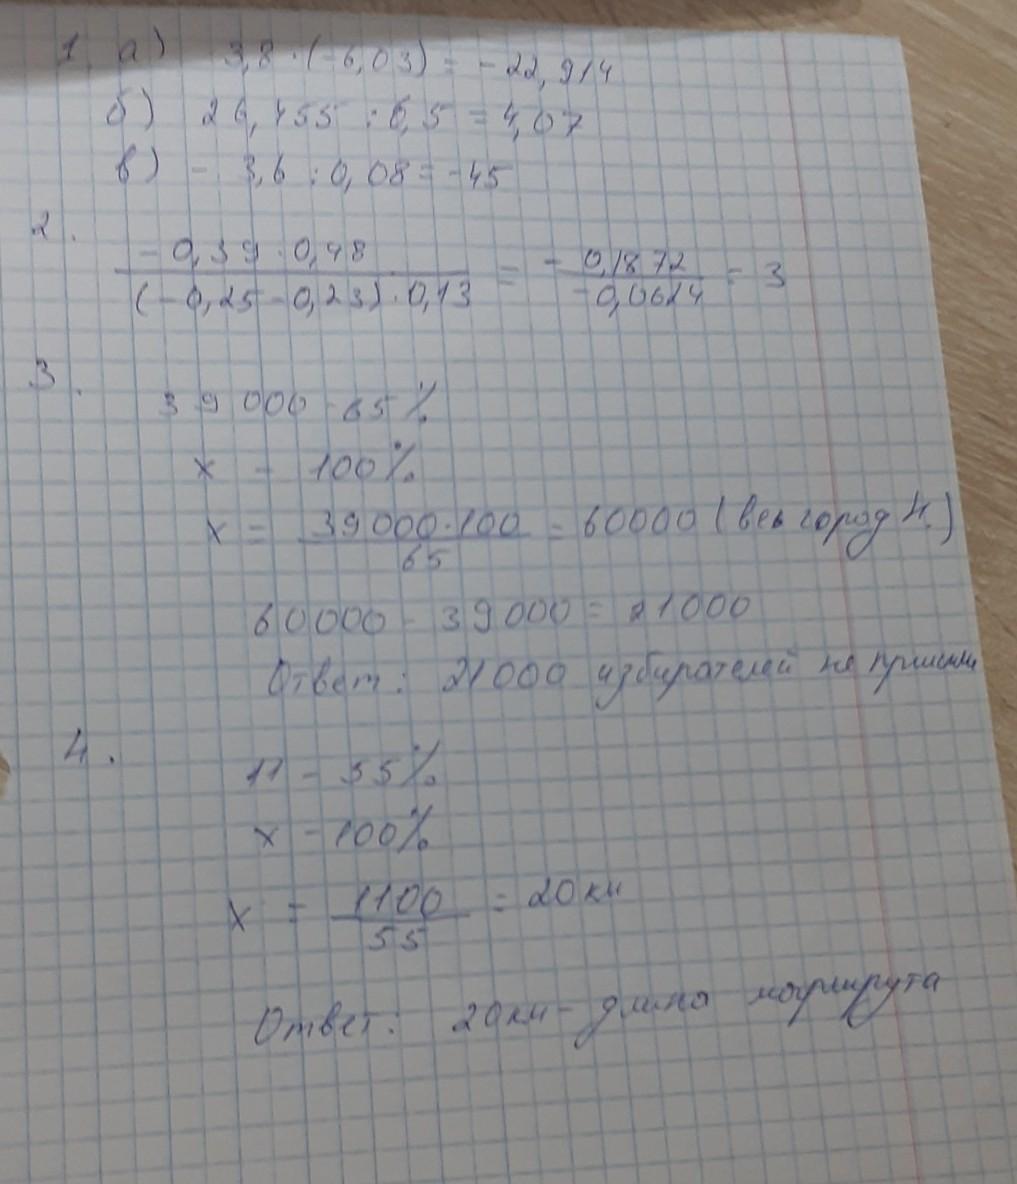 1 а) 3,8 · (-6,03) = -22,914
б) 26,455 : 6,5 = 4,07
в) - 3,6 : 0,08 = -45
2.
- 0,39 · 0,48 / (-0,25 - 0,23) · 0,13 = - 0,1872 / -0,0624 = 3
3.
39 000 - 65%
x - 100%
x = 39000 · 100 / 65 = 60000 (весь город Н.)
60000 - 39000 = 21000
Ответ: 21000 избирателей не пришли
4.
11 - 55%
x - 100%
x = 1100 / 55 = 20 км
Ответ: 20 км - длина маршрута